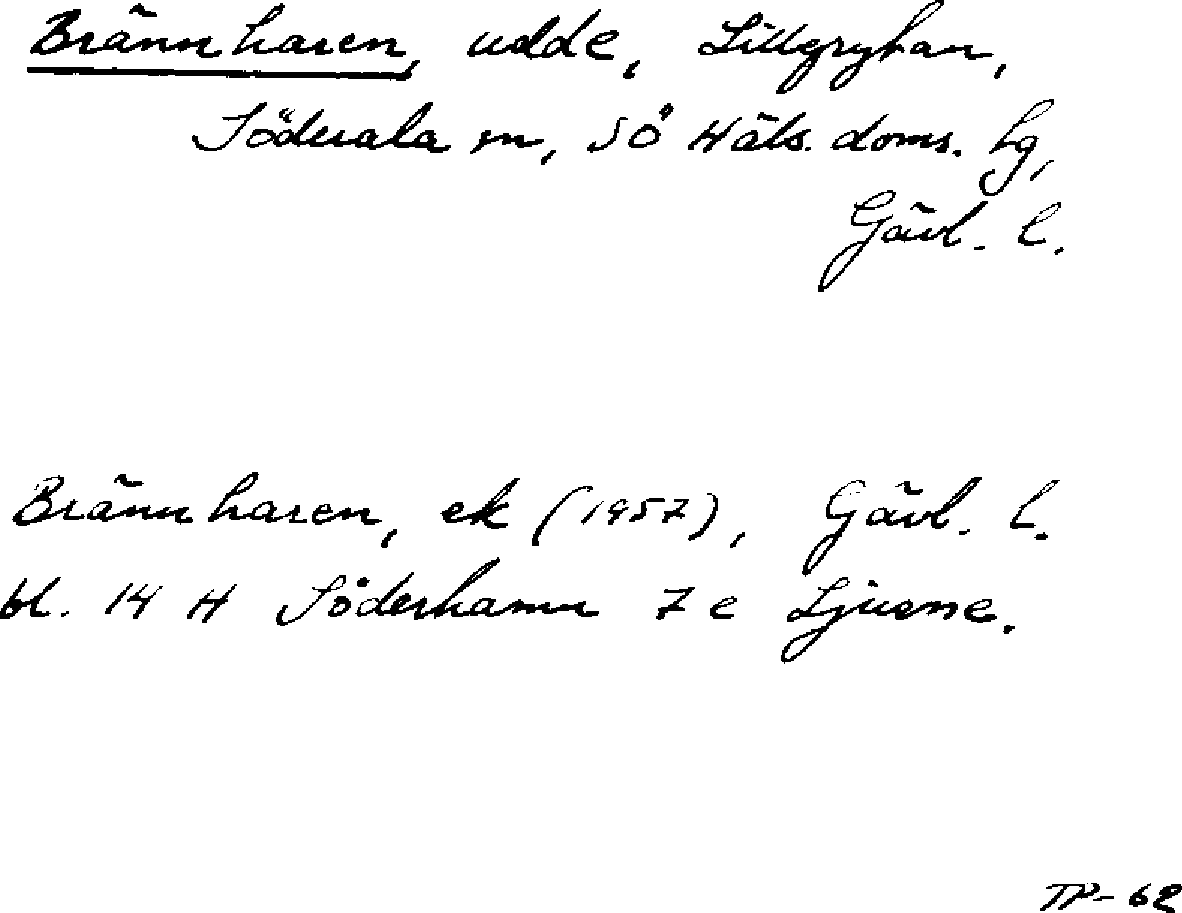 Brännharen, udde, Lillgrytan,
Söderala sn, SÖ Häls. doms. hg,
Gävl. l.
Brännharen, ek (1957), Gävl. l.
bl. 14 H Söderhamn 7 e Ljusne.
TP-62